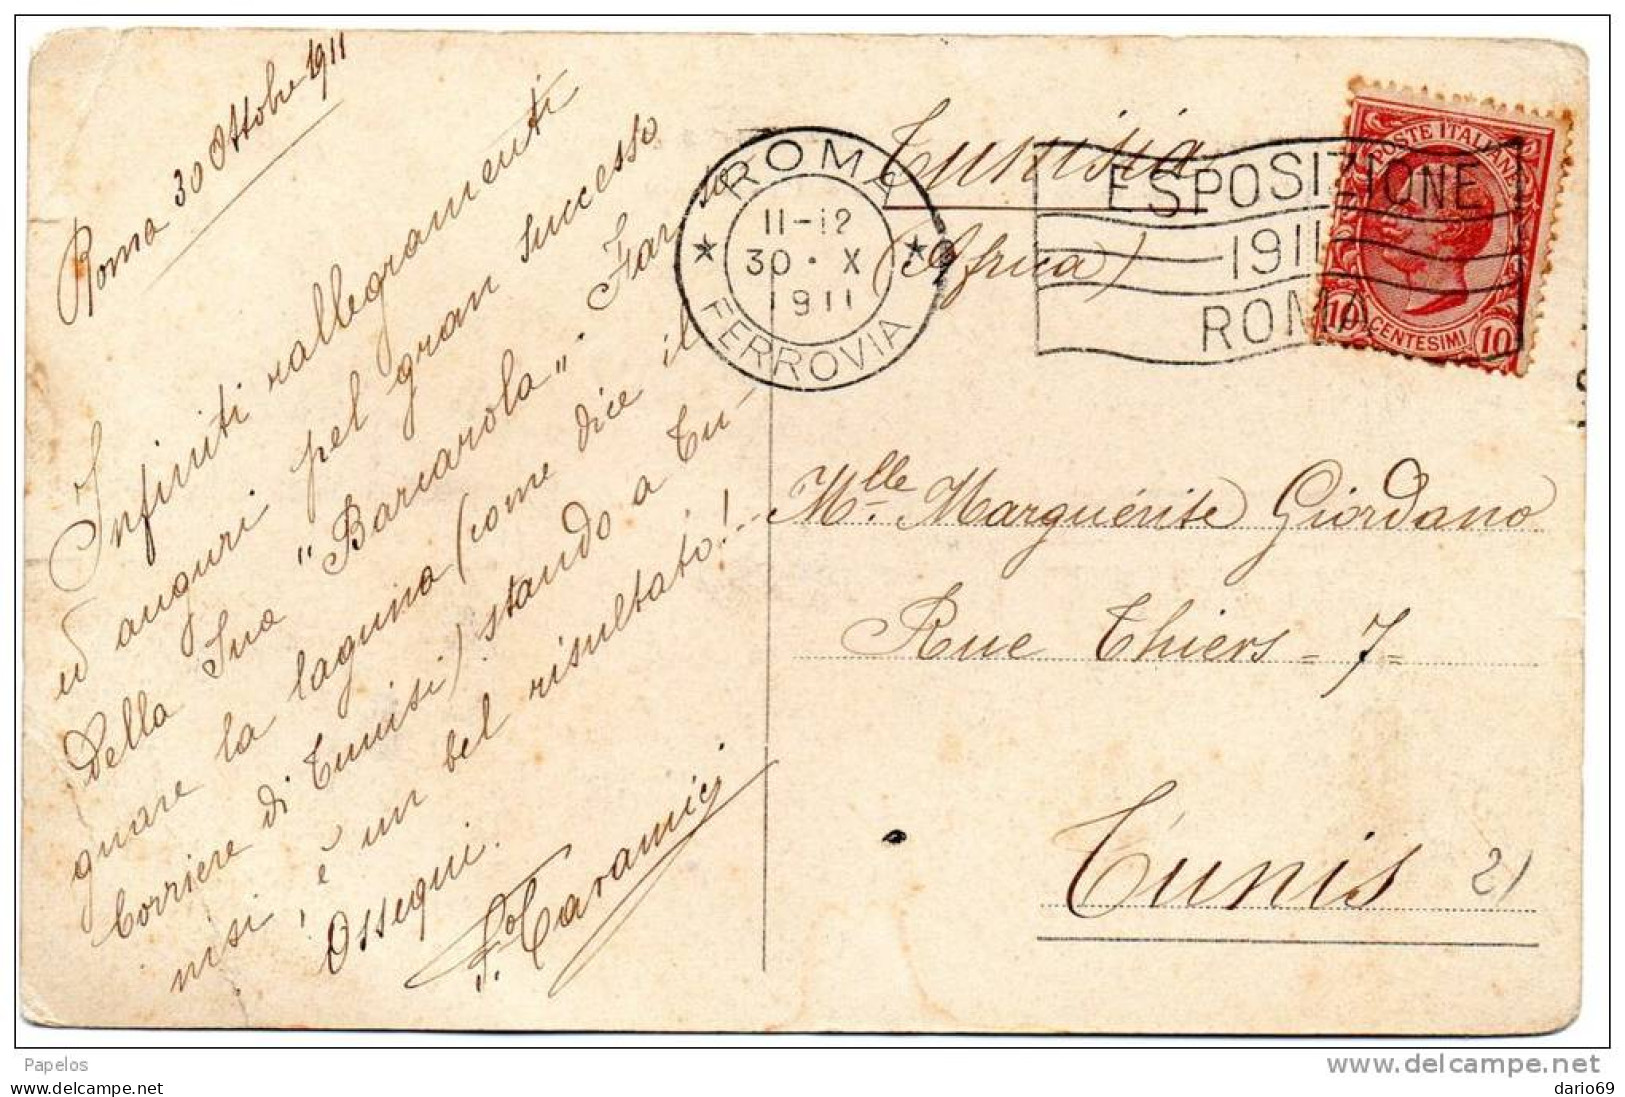 Roma 30 Ottobre 1911
Infiniti rallegramenti
ed auguri pel gran successo
della Sua "Barcarola". Far so-
gnare la laguna (come dice il
Corriere di Tunisi) stando a Tu-
nisi è un bel risultato!
Ossequi.
ROMA
FERROVIA
11-12
30 · X
1911
Tunisia
(Africa)
ESPOSIZIONE
1911
ROMA
POSTE ITALIANE
10 CENTESIMI 10
Mlle Marguérite Giordano
Rue Thiers = 7 =
Tunis
21
Papelos
www.delcampe.net
dario69